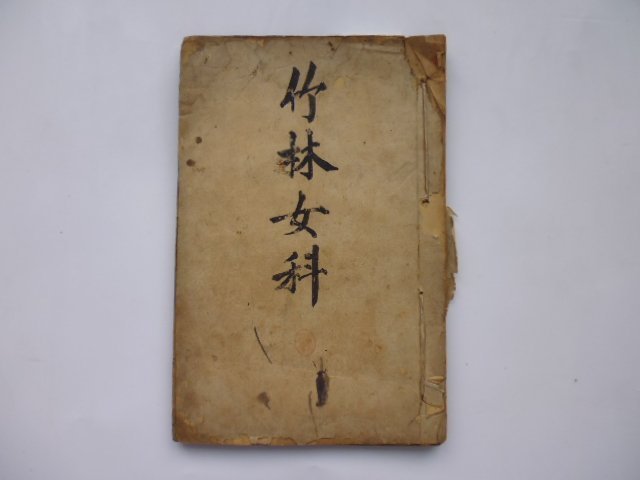 竹林女科